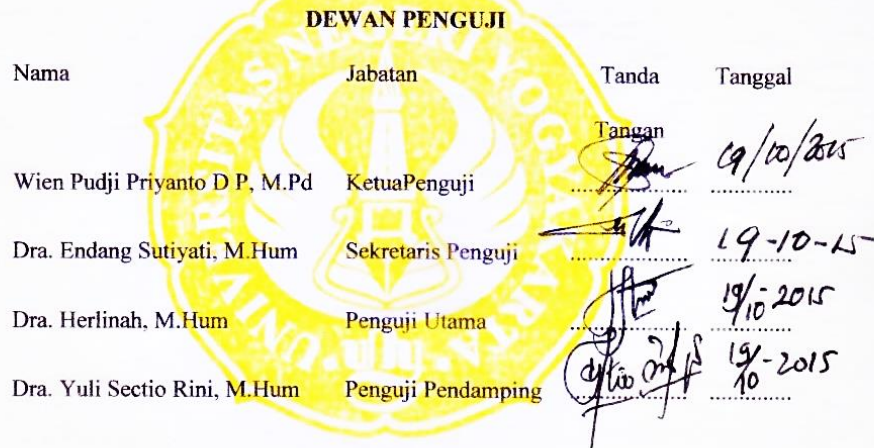 DEWAN PENGUJI
Nama Jabatan Tanda Tanggal
Tangan
Wien Pudji Priyanto D P, M.Pd KetuaPenguji .................... 19/10/2015
Dra. Endang Sutiyati, M.Hum Sekretaris Penguji .................... 19-10-15
Dra. Herlinah, M.Hum Penguji Utama .................... 19/10-2015
Dra. Yuli Sectio Rini, M.Hum Penguji Pendamping .................... 19/10-2015
UNIVERSITAS NEGERI YOGYAKARTA